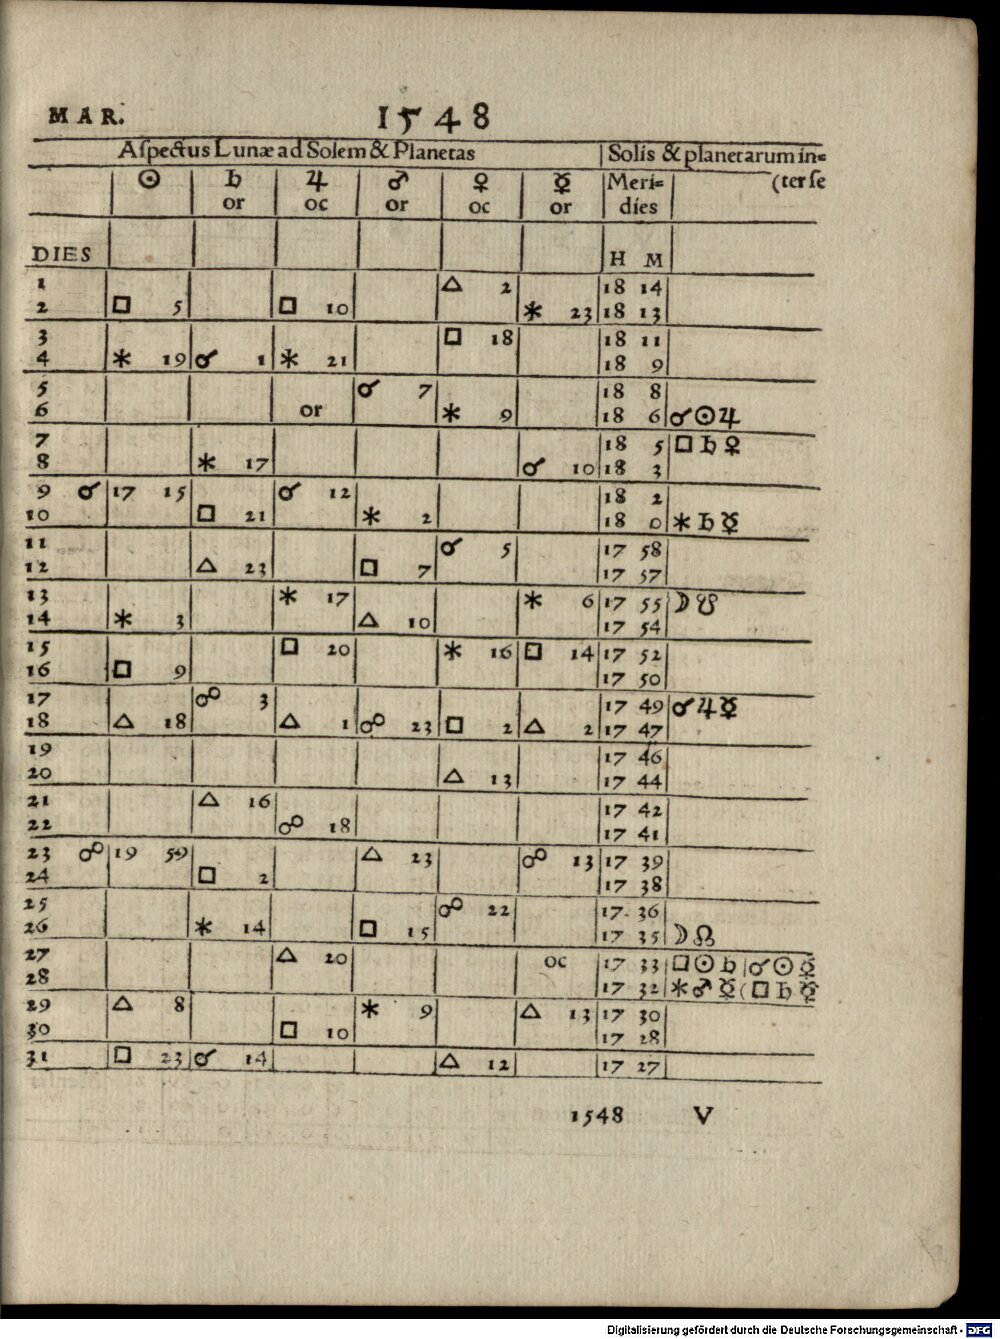 MAR. 1548
Aſpectus Lunæ ad Solem & Planetas | Solis & planetarum in=
☉ ♄ ♃ ♂ ♀ ☿ Meri= (ter ſe
or oc or oc or dies
DIES H M
1 △ 2 18 14
2 □ 5 □ 10 ⚹ 23 18 13
3 □ 18 18 11
4 ⚹ 19 ☌ 1 ⚹ 21 18 9
5 ☌ 7 18 8
6 or ⚹ 9 18 6 ☌☉♃
7 18 5 □♄♀
8 ⚹ 17 ☌ 10 18 3
9 ☌ 17 15 ☌ 12 18 2
10 □ 21 ⚹ 2 18 0 ⚹♄☿
11 ☌ 5 17 58
12 △ 23 □ 7 17 57
13 ⚹ 17 ⚹ 6 17 55 ☽☋
14 ⚹ 3 △ 10 17 54
15 □ 20 ⚹ 16 □ 14 17 52
16 □ 9 17 50
17 ☍ 3 17 49 ☌♃☿
18 △ 18 △ 1 ☍ 23 □ 2 △ 2 17 47
19 17 46
20 △ 13 17 44
21 △ 16 17 42
22 ☍ 18 17 41
23 ☍ 19 59 △ 23 ☍ 13 17 39
24 □ 2 17 38
25 ☍ 22 17 36
26 ⚹ 14 □ 15 17 35 ☽☊
27 △ 20 oc 17 33 □☉♄|☌☉☿
28 17 32 ⚹♂☿(□♄☿
29 △ 8 ⚹ 9 △ 13 17 30
30 □ 10 17 28
31 □ 23 ☌ 14 △ 12 17 27
1548 V
Digitalisierung gefördert durch die Deutsche Forschungsgemeinschaft - DFG